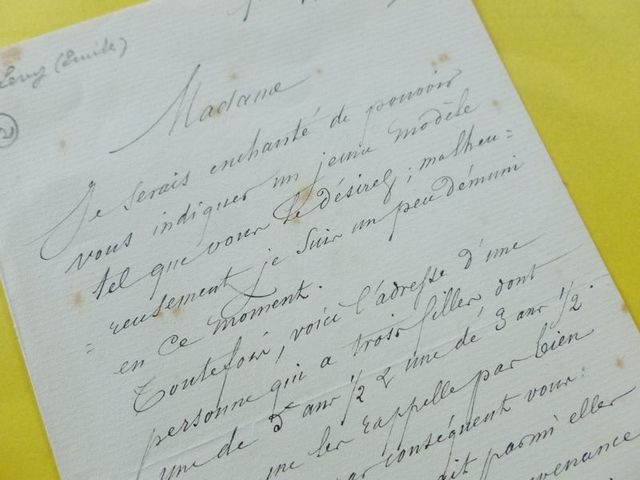 Levy (Emile)
2
Madame
Je serais enchanté de pouvoir
vous indiquer un jeune modèle
tel que vous le désirez; malheu=
=reusement je suis un peu démuni
en ce moment.
Toutefois, voici l'adresse d'une
personne qui a trois filles, dont
une de 5 ans 1/2 & une de 3 ans 1/2.
ne les rappelle pas bien
par conséquent vous
ait parmi elles
venance